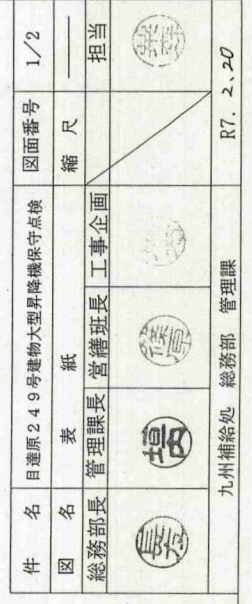 件名 目達原249号建物大型昇降機保守点検 図面番号 1/2
図名 表紙 縮尺 ―
総務部長 管理課長 営繕班長 工事企画 担当
九州補給処 総務部 管理課 R7. 2.20